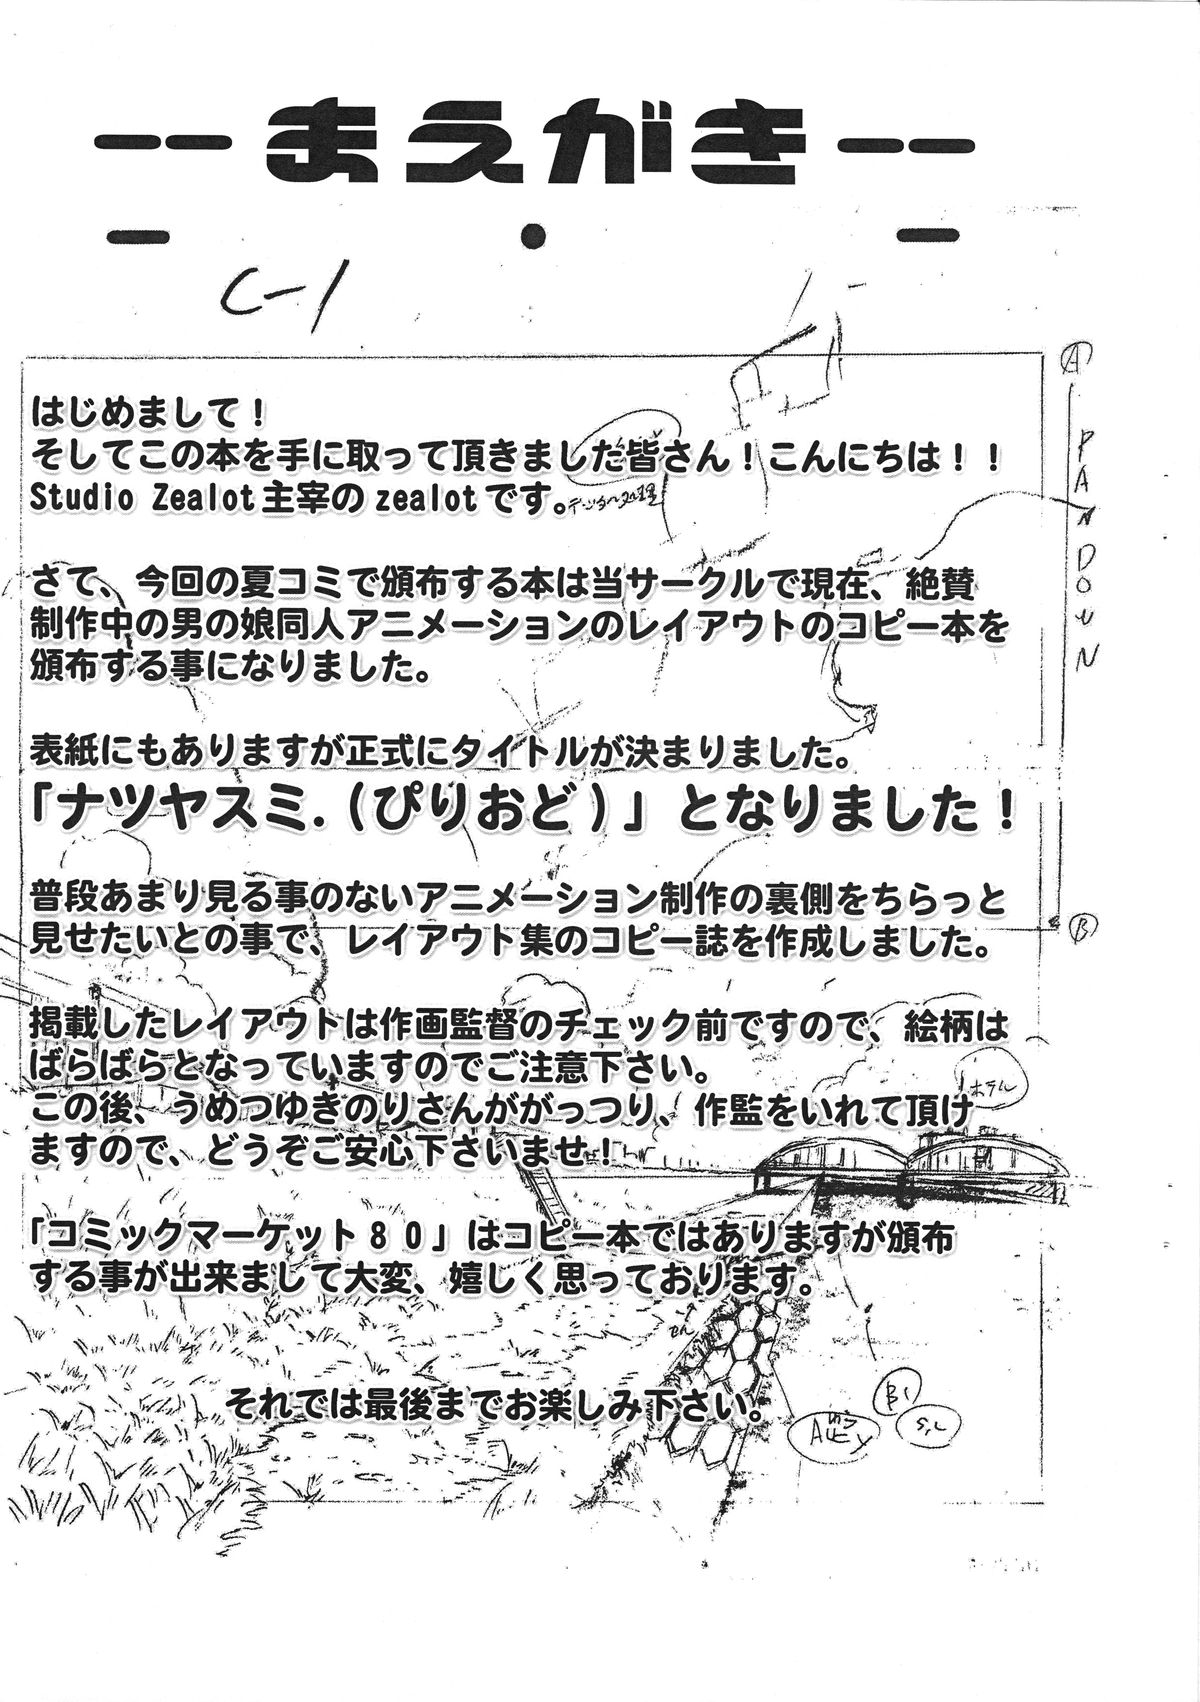 --まえがき--
C-1
A
PAN DOWN
はじめまして！
そしてこの本を手に取って頂きました皆さん！こんにちは！！
Studio Zealot主宰のzealotです。
さて、今回の夏コミで頒布する本は当サークルで現在、絶賛
制作中の男の娘同人アニメーションのレイアウトのコピー本を
頒布する事になりました。
表紙にもありますが正式にタイトルが決まりました。
「ナツヤスミ.(ぴりおど)」となりました！
普段あまり見る事のないアニメーション制作の裏側をちらっと
見せたいとの事で、レイアウト集のコピー誌を作成しました。
B
掲載したレイアウトは作画監督のチェック前ですので、絵柄は
ばらばらとなっていますのでご注意下さい。
ホテル
この後、うめつゆきのりさんががっつり、作監をいれて頂け
ますので、どうぞご安心下さいませ！
「コミックマーケット８０」はコピー本ではありますが頒布
する事が出来まして大変、嬉しく思っております。
それでは最後までお楽しみ下さい。
B1
S,L